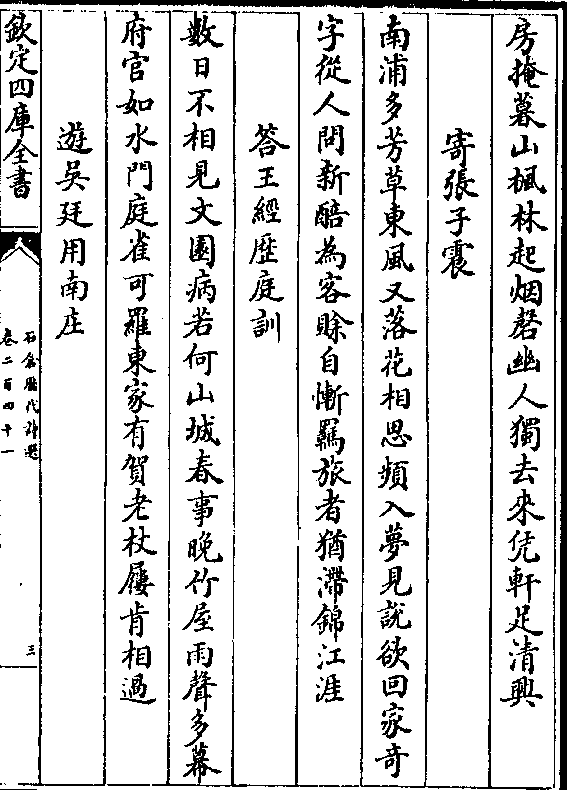 房掩暮山楓林起烟磬幽人獨去來凭軒足清興
寄張子震
南浦多芳草東風又落花相思頻入夢見說欲回家奇
字從人問新醅為客賒自慚羈旅者猶滯錦江涯
答王經歷庭訓
數日不相見文園病若何山城春事晚竹屋雨聲多幕
府官如水門庭雀可羅東家有賀老杖屨肯相過
遊吳廷用南庄
欽定四庫全書
石倉歷代詩選
卷二百四十一
三